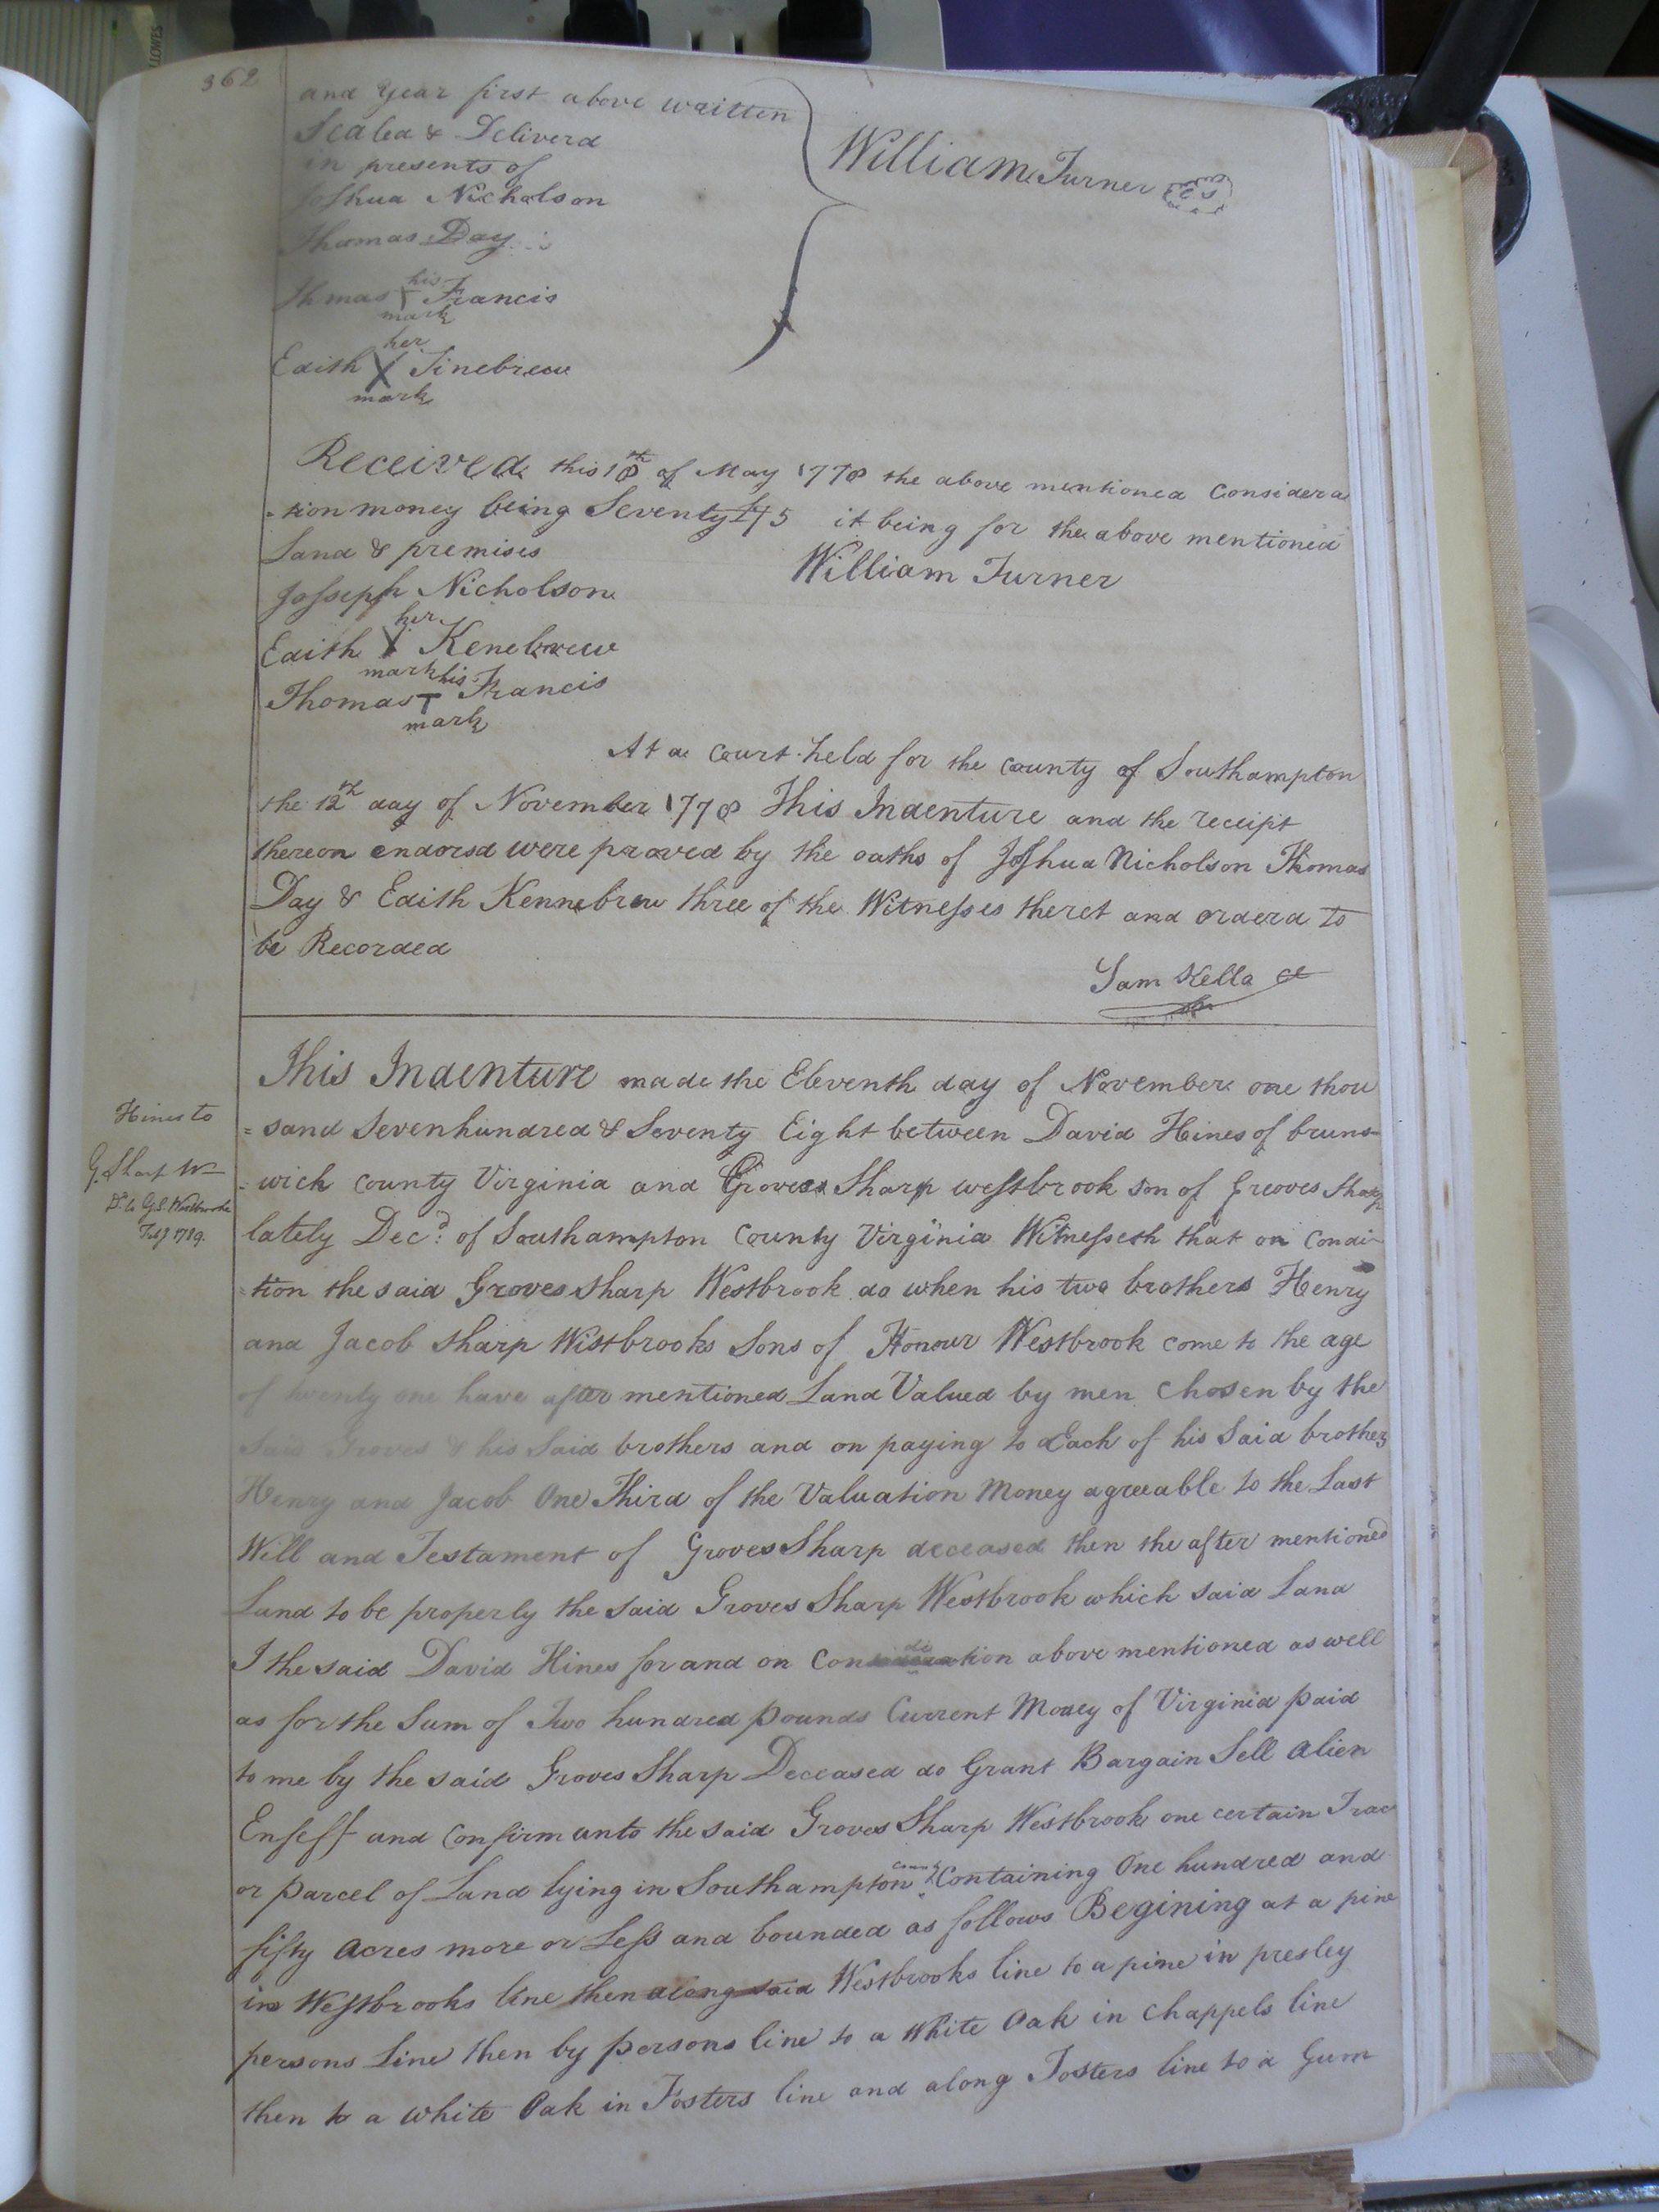 362
and Year first above waitten
Sealed & Deliverd
in presents of
Joshua Nicholson
Thomas Day
William Turner
his
Thmas T Francis
mark
her
Edith X Tinebrew
mark
Received this 18th of May 1778 the above mentioned Considera
-tion money being Seventy £75 it being for the above mentioned
Land & premises
William Turner
Joseph Nicholson
her
Edith X Kenebrew
mark his
Thomas T Francis
mark
At a Court held for the County of Southampton
the 12th day of November 1778 This Indenture and the receipt
thereon endorsd were proved by the oaths of Joshua Nicholson Thomas
Day & Edith Kennebrew three of the Witnesses theret and orderd to
be Recorded
Sam Kello
Hines to
G. Sharp
Feby 1789.
This Indenture made the Eleventh day of November one thou
=sand Sevenhundred & Seventy Eight between David Hines of bruns=
=wich County Virginia and Groves Sharp westbrook son of Greoves Sharp
lately Decd: of Southampton County Virginia Witnesseth that on Condi-
=tion the said Groves Sharp Westbrook do when his two brothers Henry
and Jacob Sharp Westbrooks Sons of Honour Westbrook come to the age
of twenty one have after mentioned Land Valued by men Chosen by the
Said Groves & his Said brothers and on paying to Each of his Said brothers
Henry and Jacob One Third of the Valuation Money agreeable to the Last
Will and Testament of Groves Sharp deceased then the after mentioned
Land to be properly the Said Groves Sharp Westbrook which said Land
I the said David Hines for and on Condition above mentioned as well
as for the Sum of Two hundred pounds Current Money of Virginia paid
to me by the said Groves Sharp Deceased do Grant Bargain Sell Alien
Enfeff and Confirm unto the said Groves Sharp Westbrook one certain Trac
or parcel of Land lying in Southampton County Containing One hundred and
fifty Acres more or Less and bounded as follows Begining at a pine
in Westbrooks line then along said Westbrooks line to a pine in presley
persons Line then by persons line to a White Oak in Chappels line
then to a white Oak in Fosters line and along Fosters line to a Gum